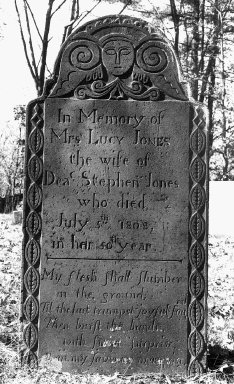 In Memory of
Mrs Lucy Jones
the wife of
Dea. Stephen Jones
who died
July 5th 1808,
in her 50 year.
My flesh shall slumber
in the ground,
Till the last trumpet joyful sound
Then burst the bands,
with sweet surprise